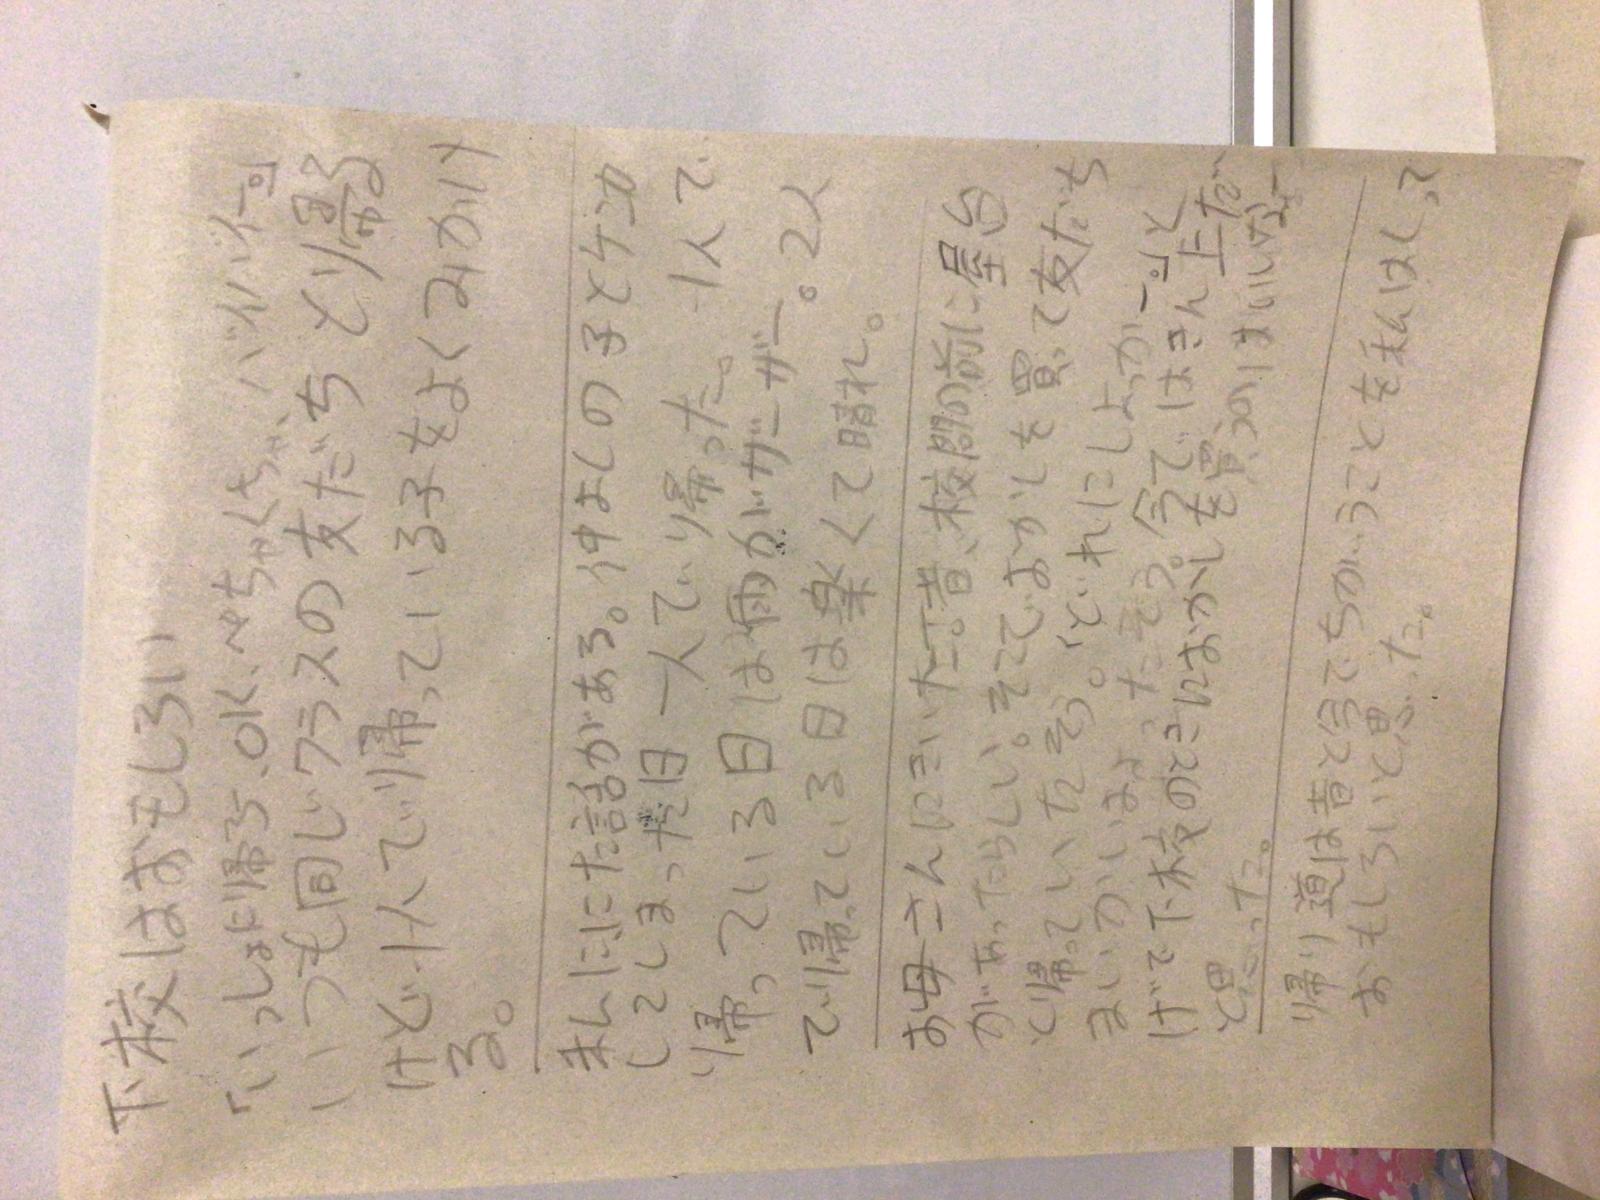 下校はおもしろい
「いっしょに帰ろう、OK、ぺちゃくちゃ、バイバイー。」
いつも同じクラスの友だちとり帰る
けど、1人でり帰っている子をよくみかけ
る。
私ににた話がある。仲よしの子とケンカ
してしまった日一人でり帰った。1人で
り帰っている日は雨がザーザー。2人
でり帰っている日は楽くて晴れ。
お母さんにきいた。昔、校門の前に屋台
があったらしい。そこでおかしを買って友だち
と帰っていたそう。「どれにしよっかー。」と
まいかいまよったそう。今ではきん止だ
けど下校のときにおかしを買うのはいいなー
と思った。
帰り道は昔と今でちがうことを私はしって
おもしろいと思った。